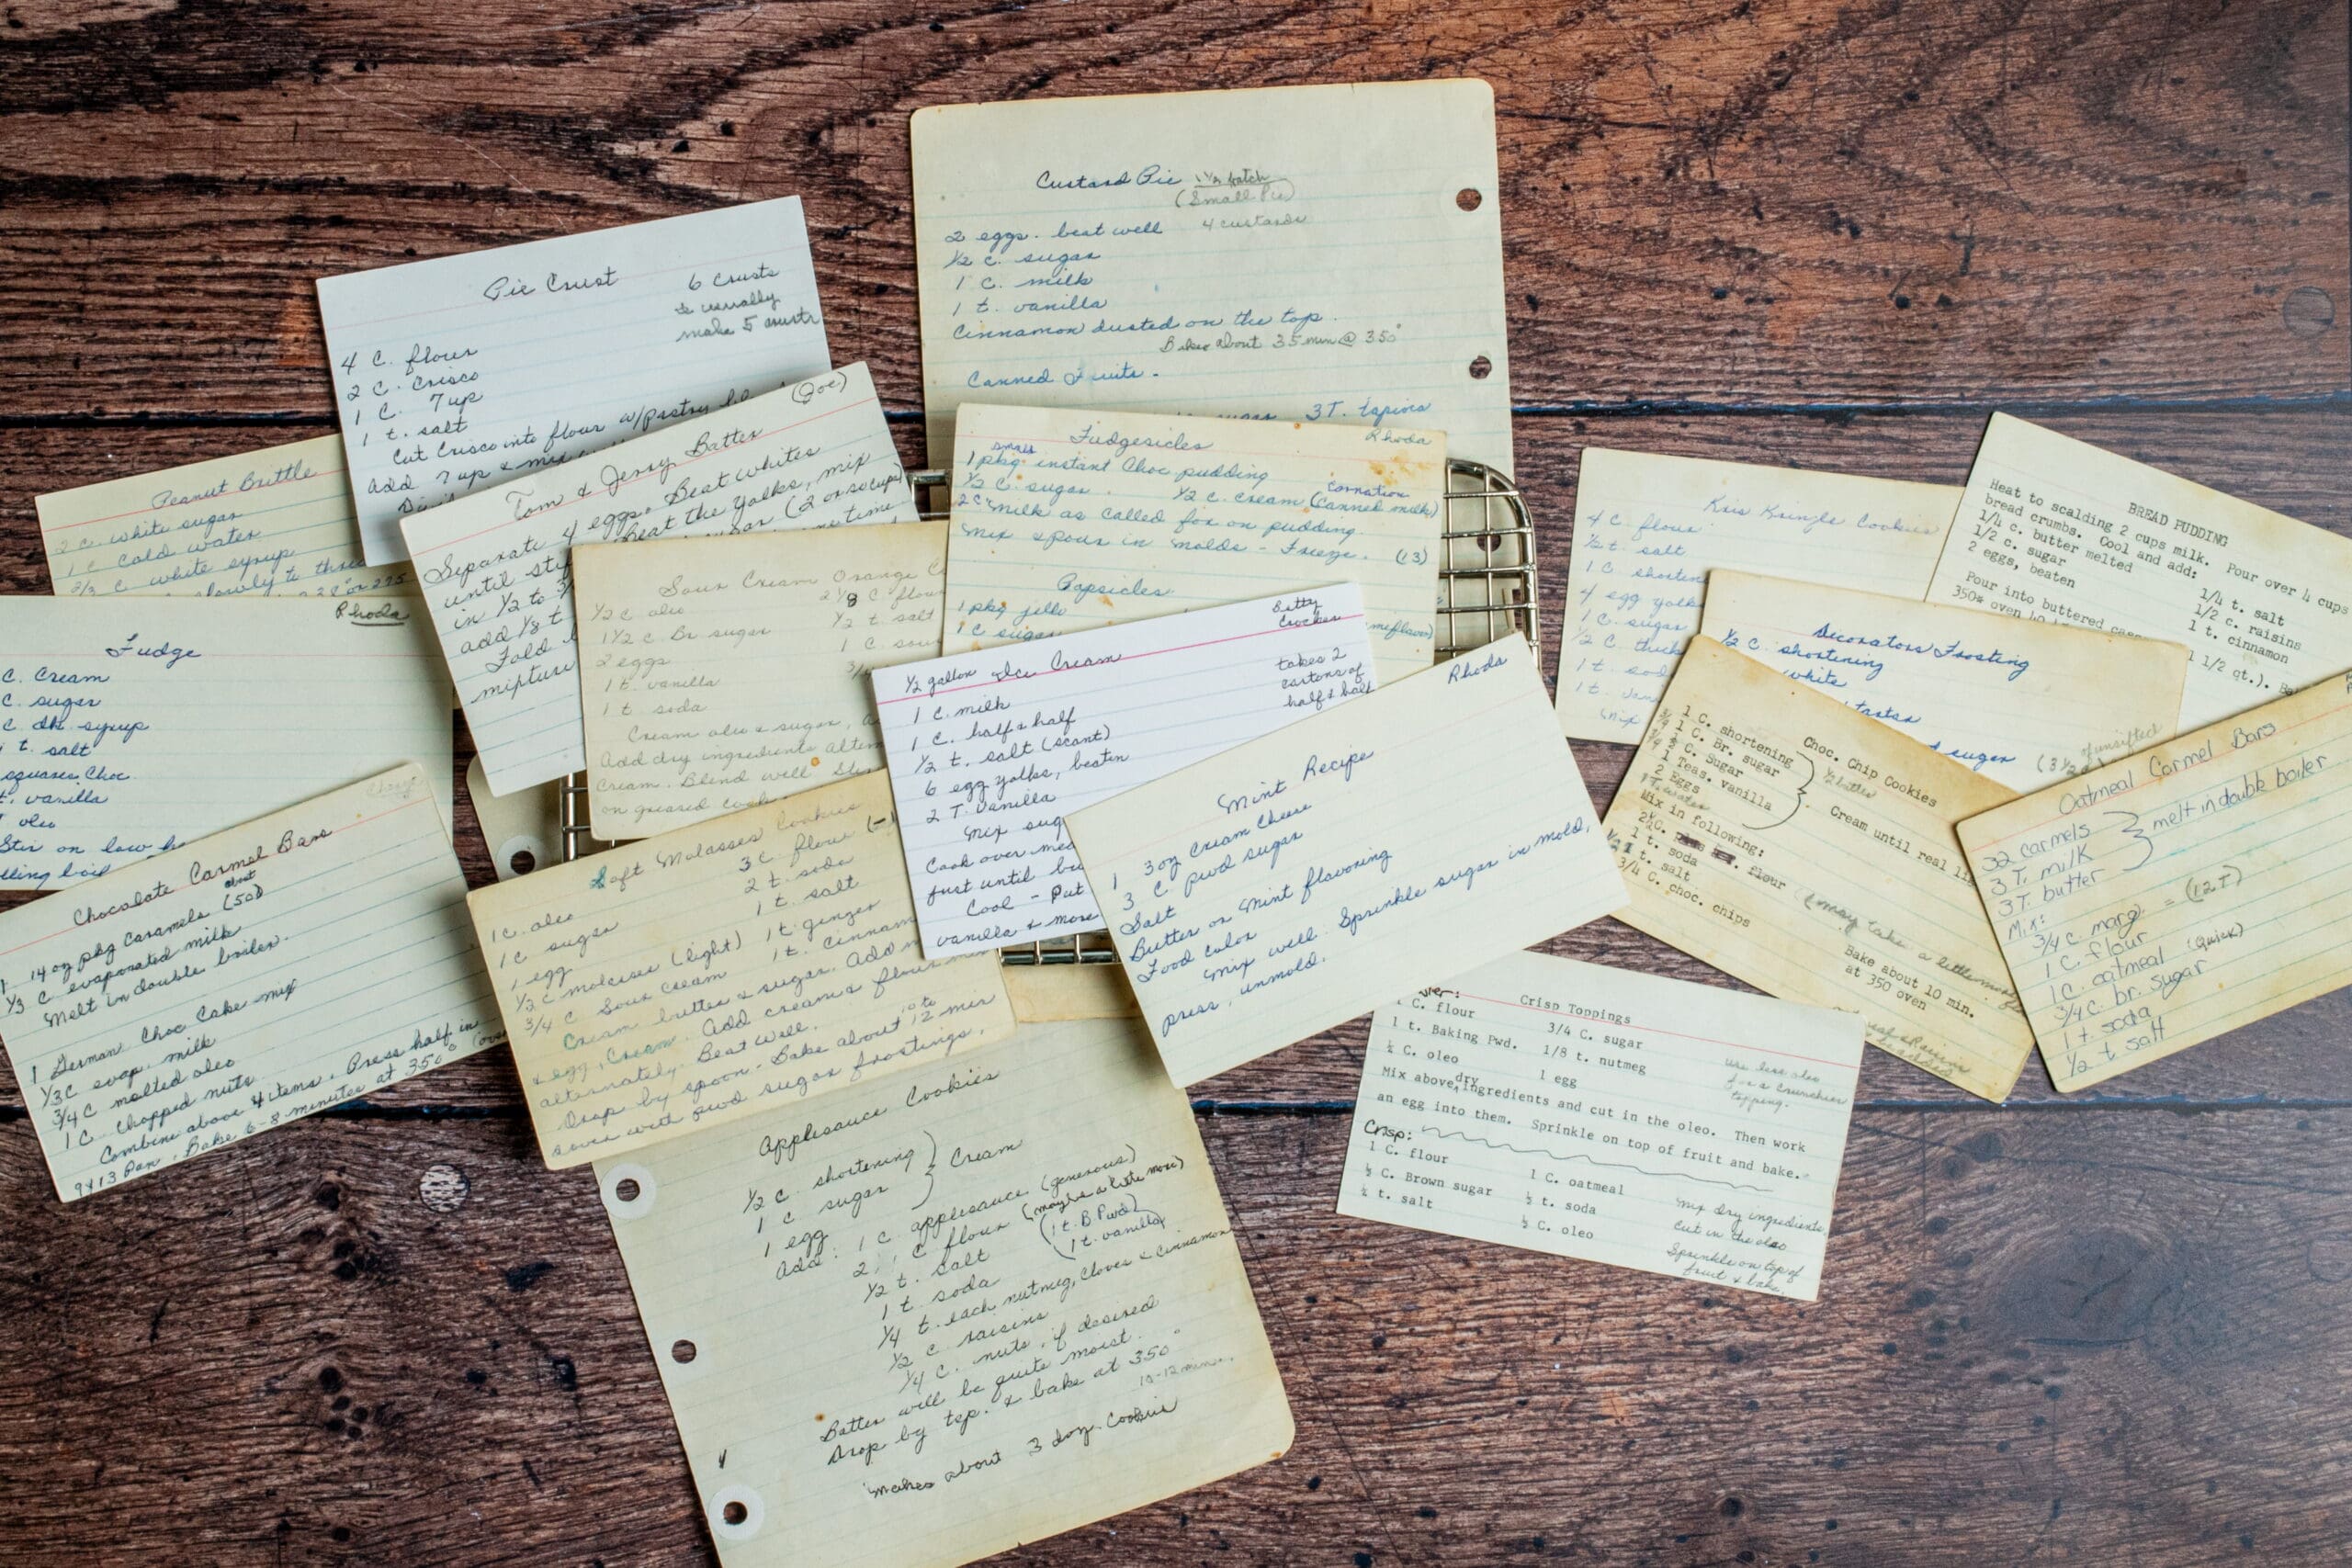 Custard Pie 1 1/2 batch
(Small Pie)
2 eggs. beat well 4 custards
1/2 c. sugar
1 c. milk
1 t. vanilla
Cinnamon dusted on the top.
Bake about 35 min @ 350°
Canned Fruits.
sugar 3 T. tapioca
Pie Crust 6 crusts
I usually
make 5 crusts
4 C. flour
2 C. Crisco
1 C. 7 up
1 t. salt
Cut Crisco into flour w/pastry
Add 7 up & mix
Peanut Brittle
2 C. white sugar
1 C. Cold water
2/3 C white syrup
slowly to
or 275
Tom & Jerry Batter (Joe)
Separate 4 eggs. Beat whites
until Beat the yolks, mix
in 1/2 to (2 or so cups)
add 1/8 t time
Fold
mixture
Fudgesicles Rhoda
small
1 pkg instant Choc pudding
Carnation
1/2 C. sugar. 1/2 c. cream (canned milk)
2 c milk as called for on pudding.
Mix & pour in molds - Freeze. (13)
Popsicles
1 pkg jello
1 C sugar
Sour Cream Orange
1/2 C oleo
1 1/2 c Br sugar 1/2 t salt
2 eggs 1 C
1 t. vanilla
1 t. soda
Cream oleo & sugar,
Add dry ingredients
cream. Blend well
on greased
Rhoda
Fudge
C. Cream
C. sugar
C dk. syrup
t. salt
squares Choc
t. vanilla
oleo
Stir on low
boil
Chocolate Carmel Bars
about
1 14 oz pkg Caramels (50)
1/3 C evaporated milk
Melt in double boiler.
1 German Choc Cake mix
1/3 C evap. milk
3/4 C melted oleo
1 C chopped nuts
Combine above 4 items. Press half in
9x13 Pan. Bake 6-8 minutes at 350° (over
Soft Molasses Cookies
1 C. oleo 3 C. flour (-)
1 C sugar 2 t. soda
1 egg 1 t. salt
1/3 C molasses (light) 1 t. ginger
3/4 C Sour Cream 1 t. Cinnamon
Cream butter & sugar. Add
& egg, Cream. Add cream & flour
alternately. Beat well. 10 to
Drop by spoon. Bake about 12 min
cover with pwd sugar frostings.
Betty
Crocker
1/2 gallon Ice Cream
takes 2
cartons of
half & half
1 C. milk
1 C. half & half
1/2 t. salt (scant)
6 egg yolks, beaten
2 T. vanilla
Mix
Cook over
just until
Cool - Put
vanilla & more
Mint Recipe Rhoda
1 3 oz Cream Cheese
3 C. pwd sugar
Salt
Butter or Mint flavoring
Food color
Mix well. Sprinkle sugar in mold,
press, unmold.
Applesauce Cookies
1/2 C. shortening
1 C sugar Cream
1 egg
Add: 1 C. applesauce (generous)
2 C flour (maybe a little more)
1/2 t. salt (1 t. B Pwd)
1 t. soda (1 t. vanilla)
1/4 t. each nutmeg, Cloves & Cinnamon
1/2 C raisins
1/4 C. nuts, if desired
Batter will be quite moist.
Drop by tsp. & bake at 350°
10-12 min.
Makes about 3 doz. Cookies
Kris Kringle Cookies
4 C flour
1/2 t. salt
1 C.
4 egg yolks
1 C. sugar
1/2 C
1 t.
1 t.
Mix
BREAD PUDDING
Heat to scalding 2 cups milk. Pour over 4 cups
bread crumbs. Cool and add:
1/4 c. butter melted 1/4 t. salt
1/2 c. sugar 1/2 c. raisins
2 eggs, beaten 1 t. cinnamon
Pour into buttered 1 1/2 qt.).
350° oven
Decorators Frosting
1/2 C. shortening
white
sugar
of unsifted
Choc. Chip Cookies
1 C. shortening
1 C. Br. sugar
C. Sugar
1 Teas. vanilla Cream until real
2 Eggs
Mix in following:
flour (may take a little more
1 t. soda
t. salt
3/4 C. choc. chips
Bake about 10 min.
at 350 oven
Oatmeal Carmel Bars
32 carmels
3 T. milk melt in double boiler
3 T. butter
Mix:
3/4 c. marg. = (12 T)
1 C. flour
1 C. oatmeal (Quick)
3/4 C. br. sugar
1 t. soda
1/2 t. salt
Crisp Toppings
C. flour 3/4 C. sugar
1 t. Baking Pwd. 1/8 t. nutmeg
½ C. oleo 1 egg
use less oleo
for a crunchier
topping.
dry
Mix above ingredients and cut in the oleo. Then work
an egg into them. Sprinkle on top of fruit and bake.
Crisp:
1 C. flour 1 C. oatmeal
C. Brown sugar ½ t. soda
½ t. salt ½ C. oleo
Mix dry ingredients
cut in the oleo
Sprinkle on top of
fruit & bake.